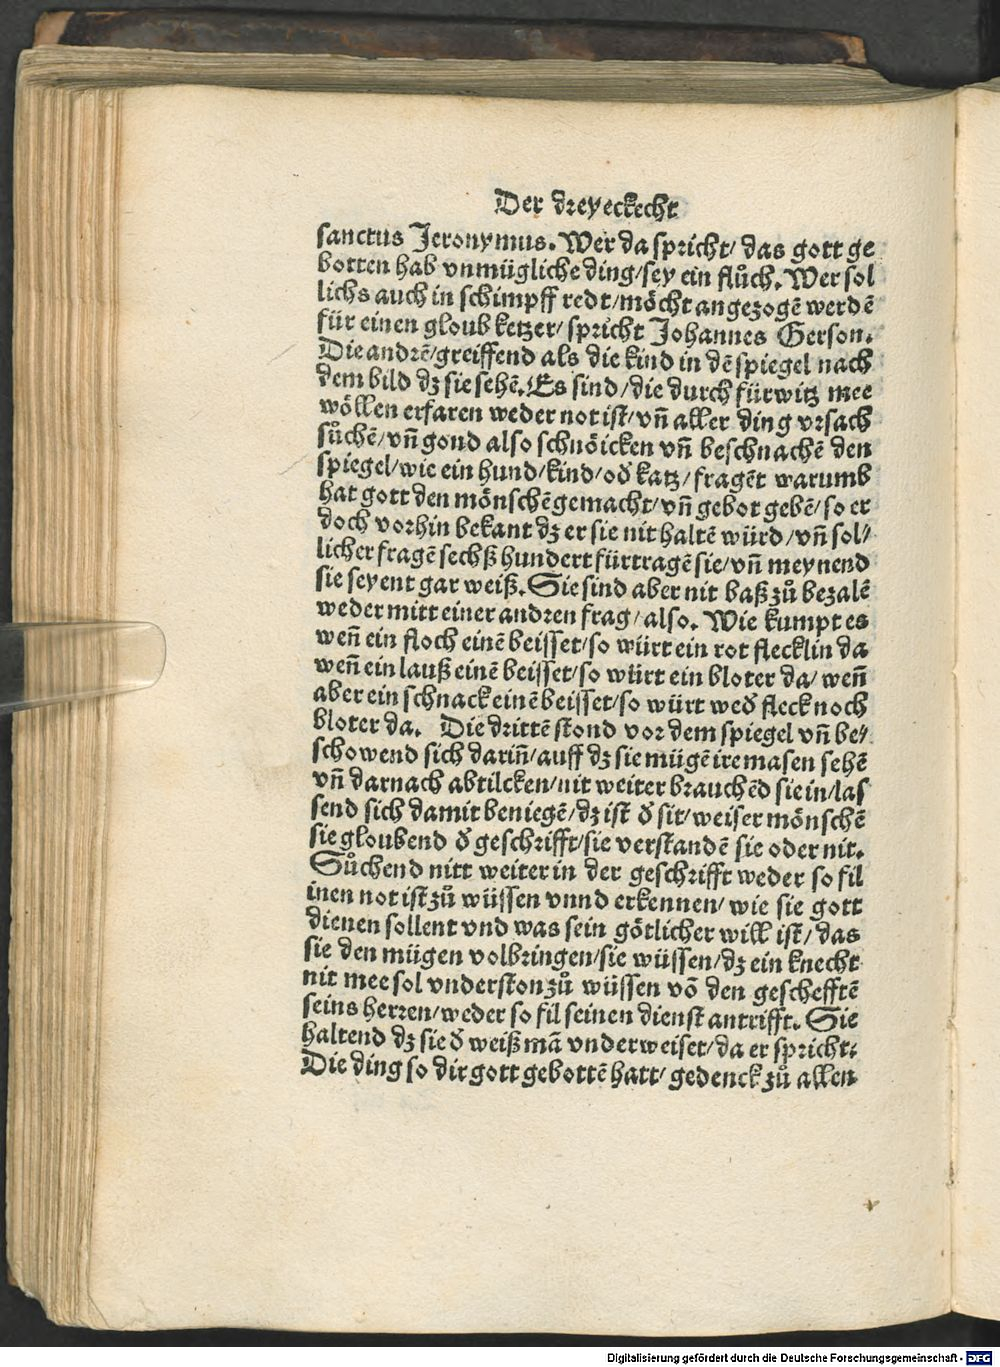 Der dreyeckecht
sanctus Jeronymus. Wer da spricht/ das gott ge
botten hab vnmügliche ding/sey ein flůch. Wer sol
lichs auch in schimpff redt/möcht angezogē werdē
für einen gloub ketzer/ spricht Johannes Gerson.
Die andrē/greiffend als die kind in dē spiegel nach
dem bild dz sie sehē. Es sind/die durch fürwitz mee
wöllen erfaren weder not ist/vn̄ aller ding vrsach
sůchē/vn̄ gond also schnöicken vn̄ beschnachē den
spiegel/wie ein hund/kind/od̛ katz/fragēt warumb
hat gott den mönschē gemacht/vn̄ gebot gebē/so er
doch vorhin bekant dz er sie nit haltē würd/vn̄ sol⸗
licher fragē sechß hundert fürtragē sie/vn̄ meynend
sie seyent gar weiß. Sie sind aber nit baß zů bezalē
weder mitt einer andren frag/also. Wie kumpt es
wen̄ ein floch einē beisset/so würt ein rot flecklin da
wen̄ ein lauß einē beisset/so würt ein bloter da/ wen̄
aber ein schnack einē beisset/so würt wed̛ fleck noch
bloter da. Die drittē stond vor dem spiegel vn̄ be⸗
schowend sich darin̄/auff dz sie mügē ire masen sehē
vn̄ darnach abtilcken/nit weiter brauchēd sie in/las
send sich damit beniegē/dz ist d̛ sit/weiser mönschē
sie gloubend d̛ geschrifft/sie verstandē sie oder nit.
Sůchend nitt weiter in der geschrifft weder so fil
inen not ist zů wüssen vnnd erkennen/ wie sie gott
dienen sollent vnd was sein götlicher will ist/das
sie den mügen volbringen/sie wüssen/dz ein knecht
nit mee sol vnderston zů wüssen vō den geschefftē
seins herren/weder so fil seinen dienst antrifft. Sie
haltend dz sie d̛ weiß mā vnderweiset/da er spricht:
Die ding so dir gott gebottē hatt/ gedenck zů allen
Digitalisierung gefördert durch die Deutsche Forschungsgemeinschaft - DFG